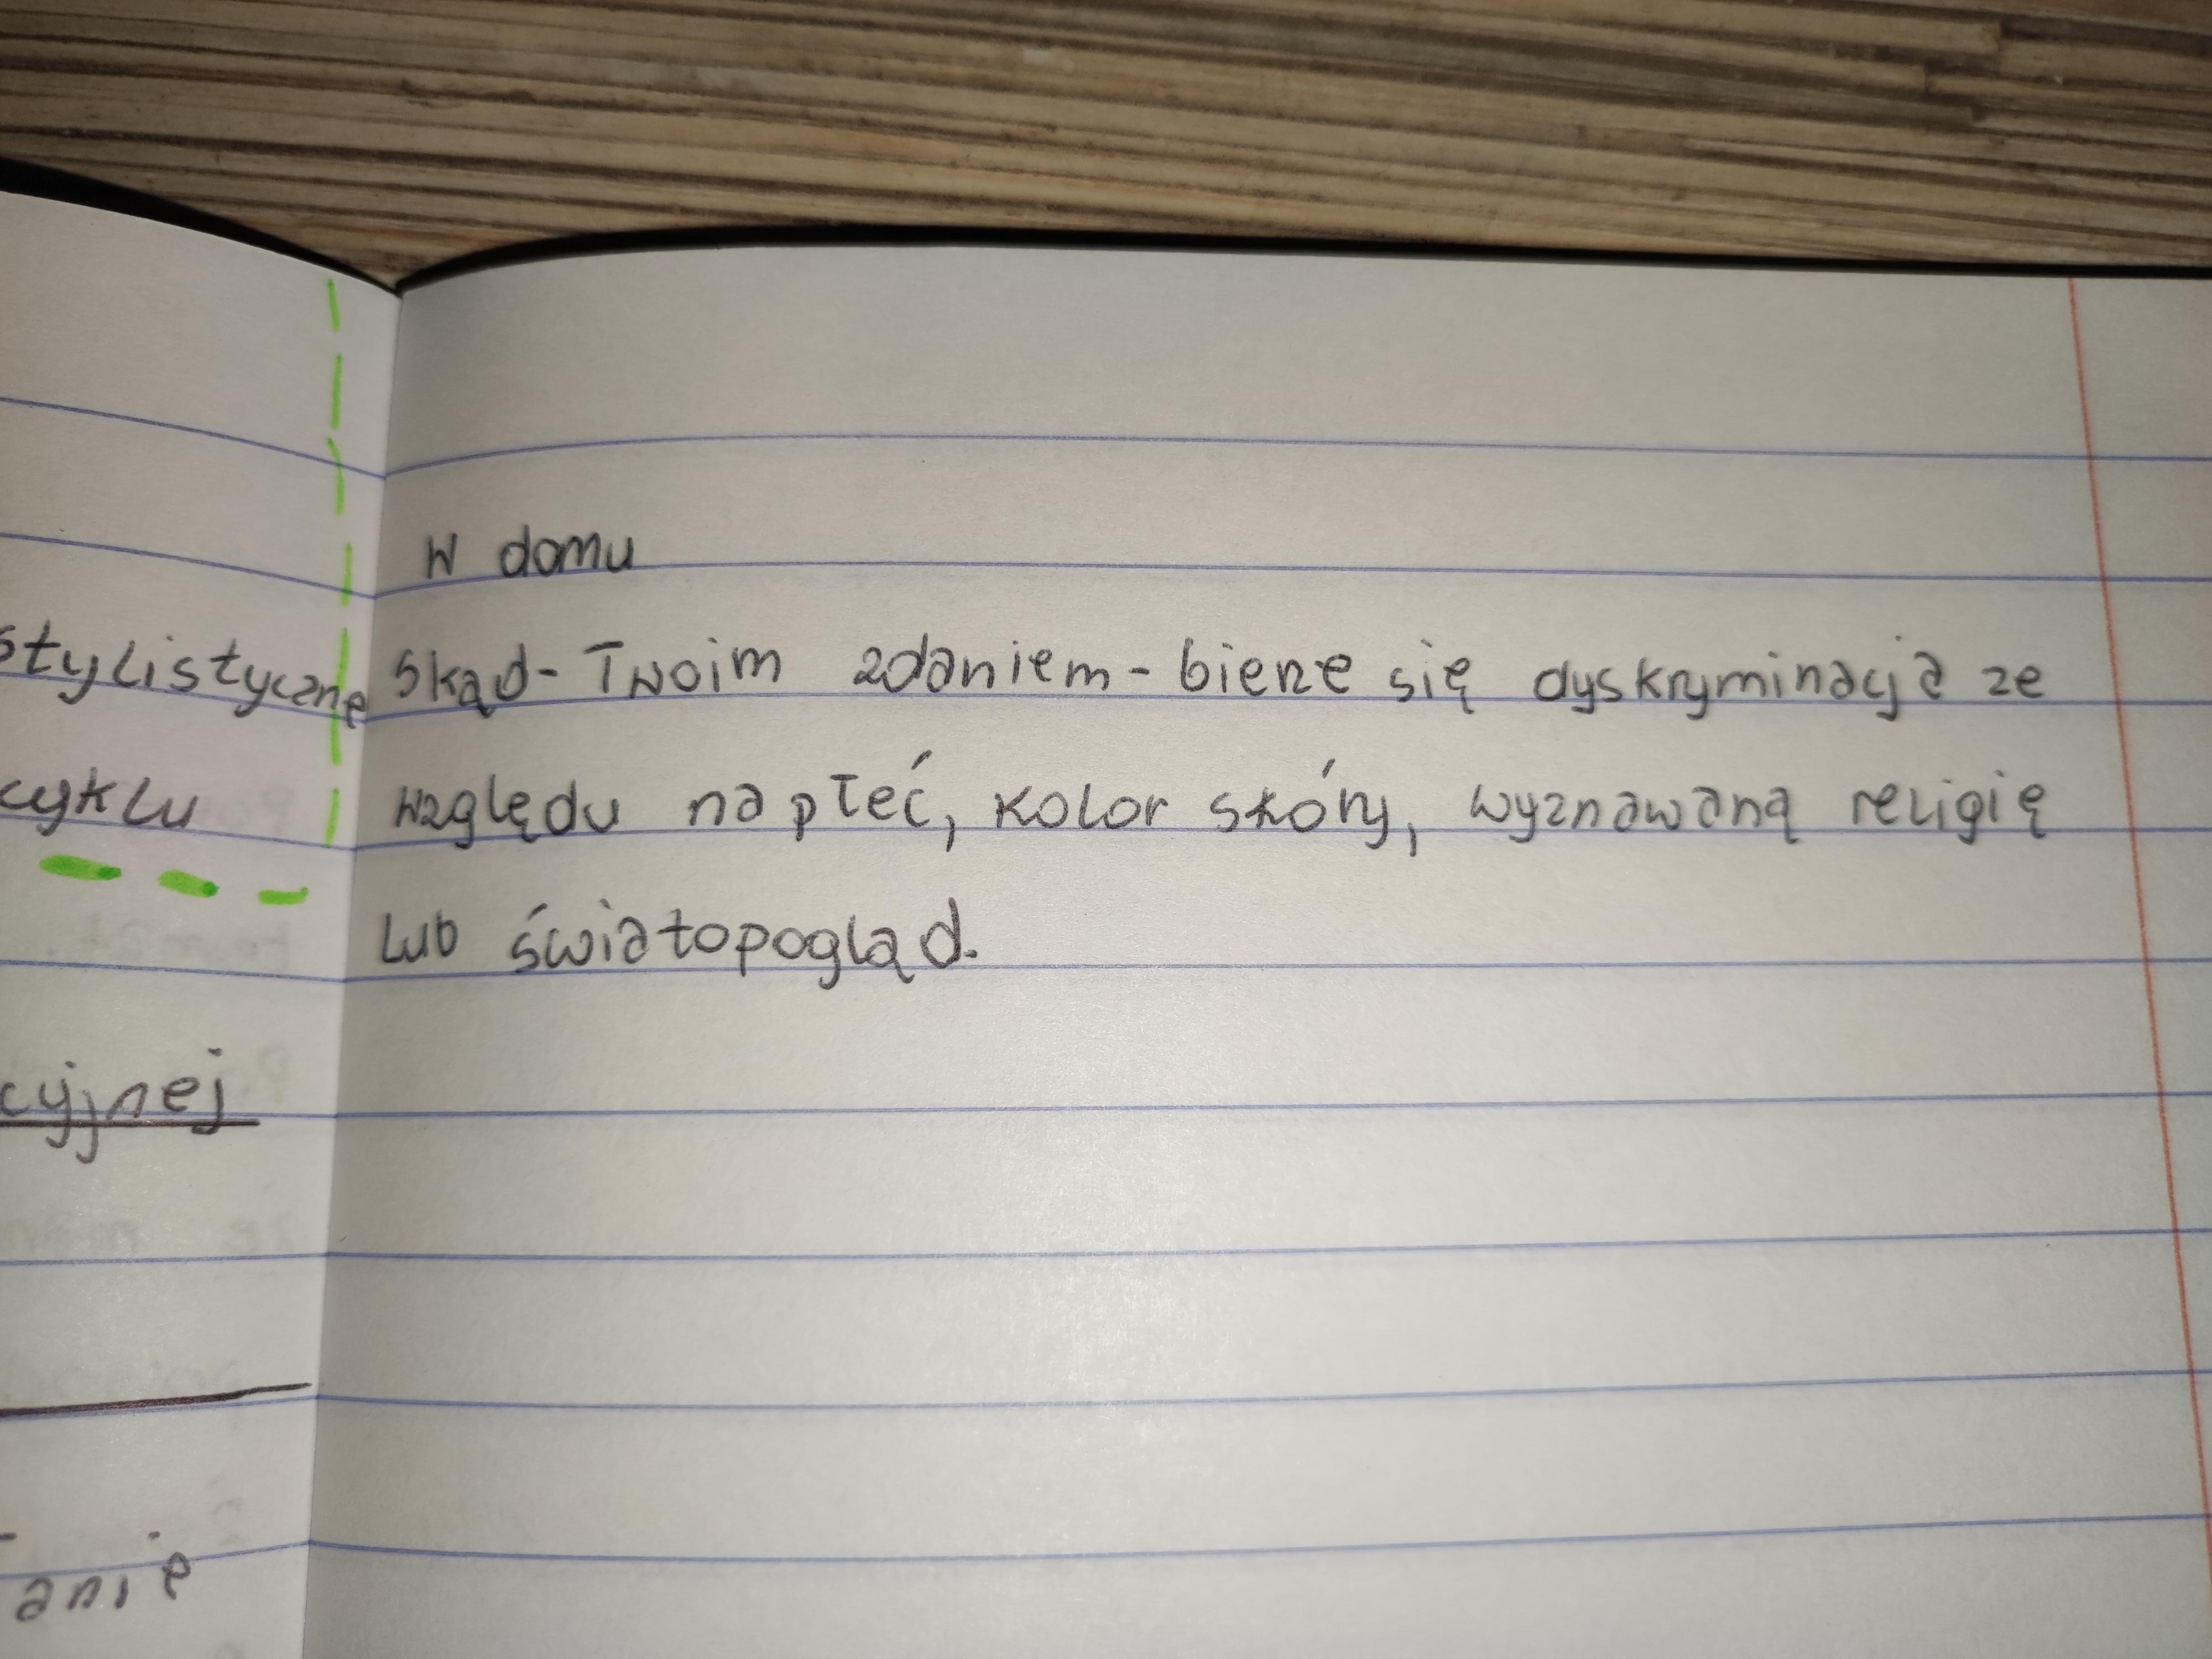 stylistyczne
cyklu
cyjnej
anie
W domu
Skąd - Twoim zdaniem - bierze się dyskryminacja ze
względu na płeć, kolor skóry, wyznawaną religię
lub światopogląd.